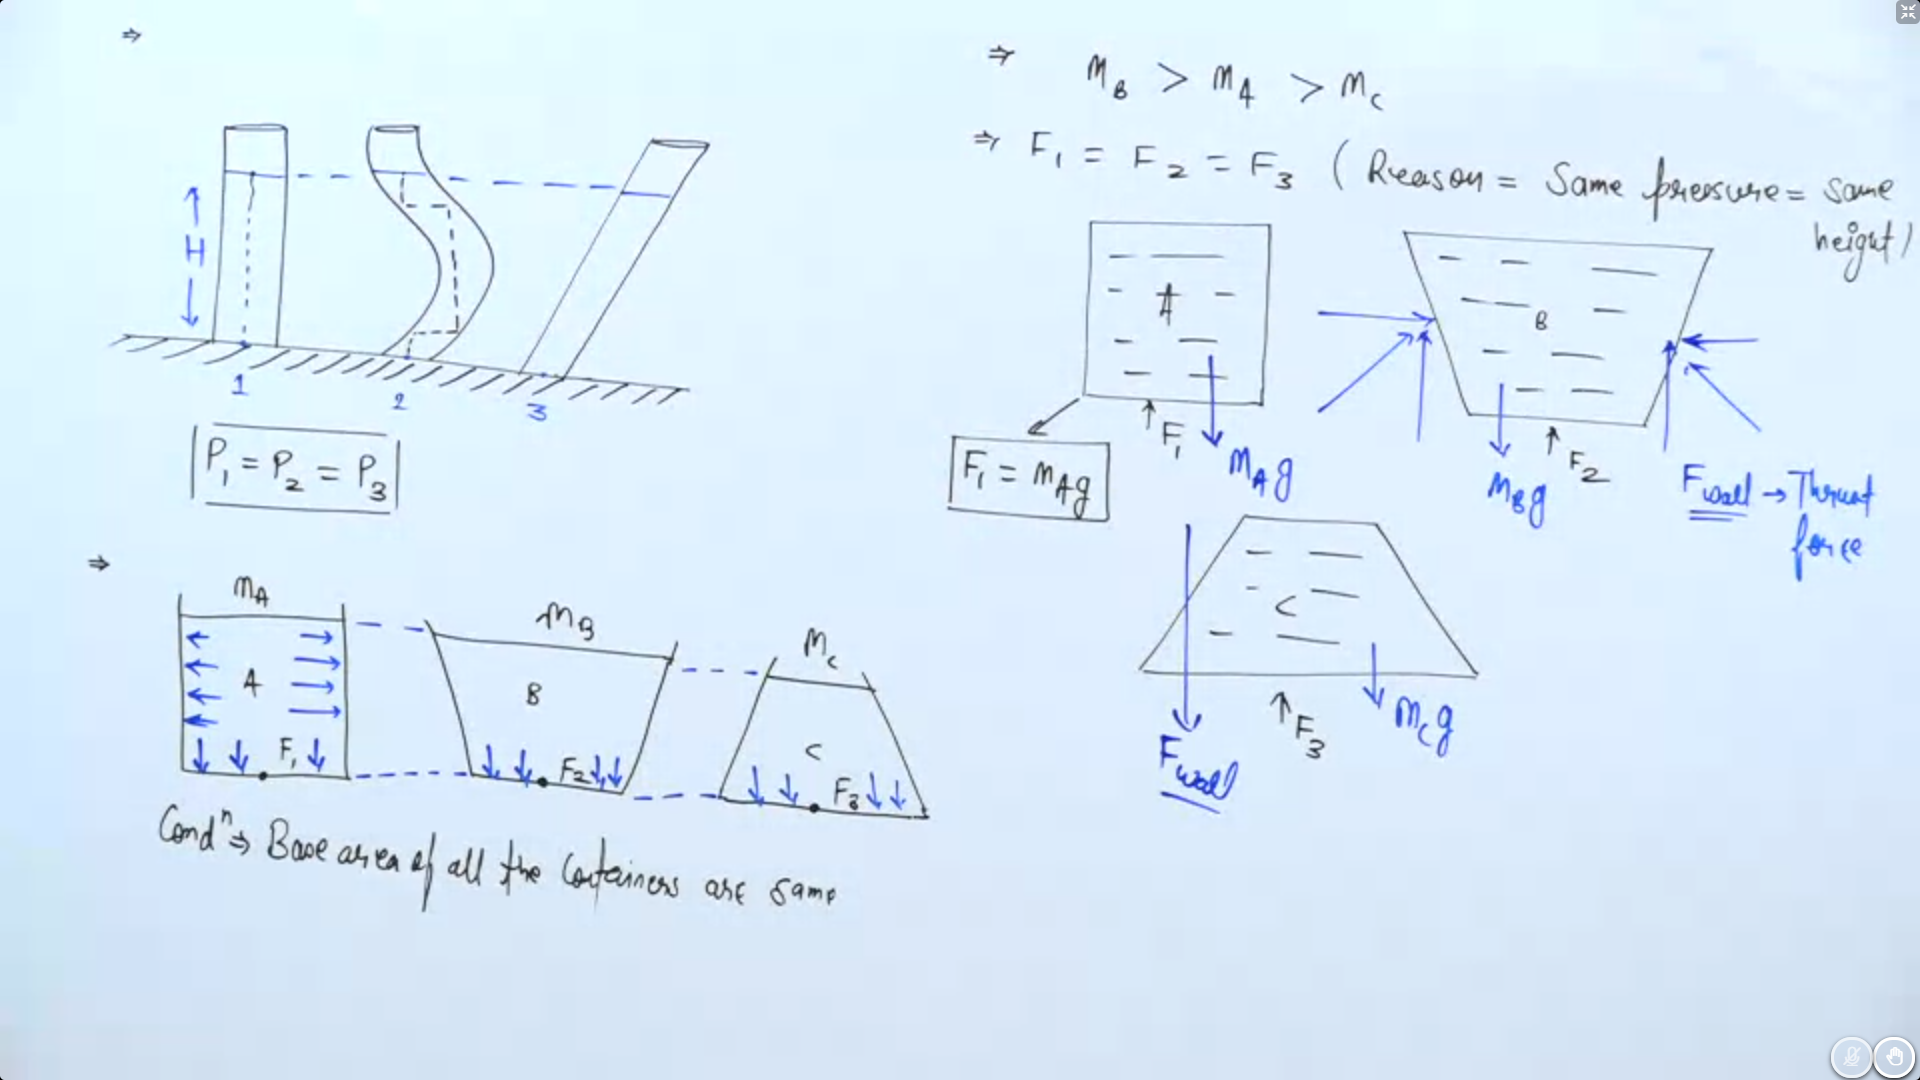 ⇒
H
1
2
3
P₁ = P₂ = P₃
⇒
mA
mB
mC
A
B
C
F₁
F₂
F₃
Condⁿ ⇒ Base area of all the containers are same
⇒ mB > mA > mC
⇒ F₁ = F₂ = F₃ ( Reason = Same pressure = same
height )
A
F₁
mAg
F₁ = mAg
B
mBg
F₂
Fwall → Thrust
force
C
Fwall
F₃
mCg